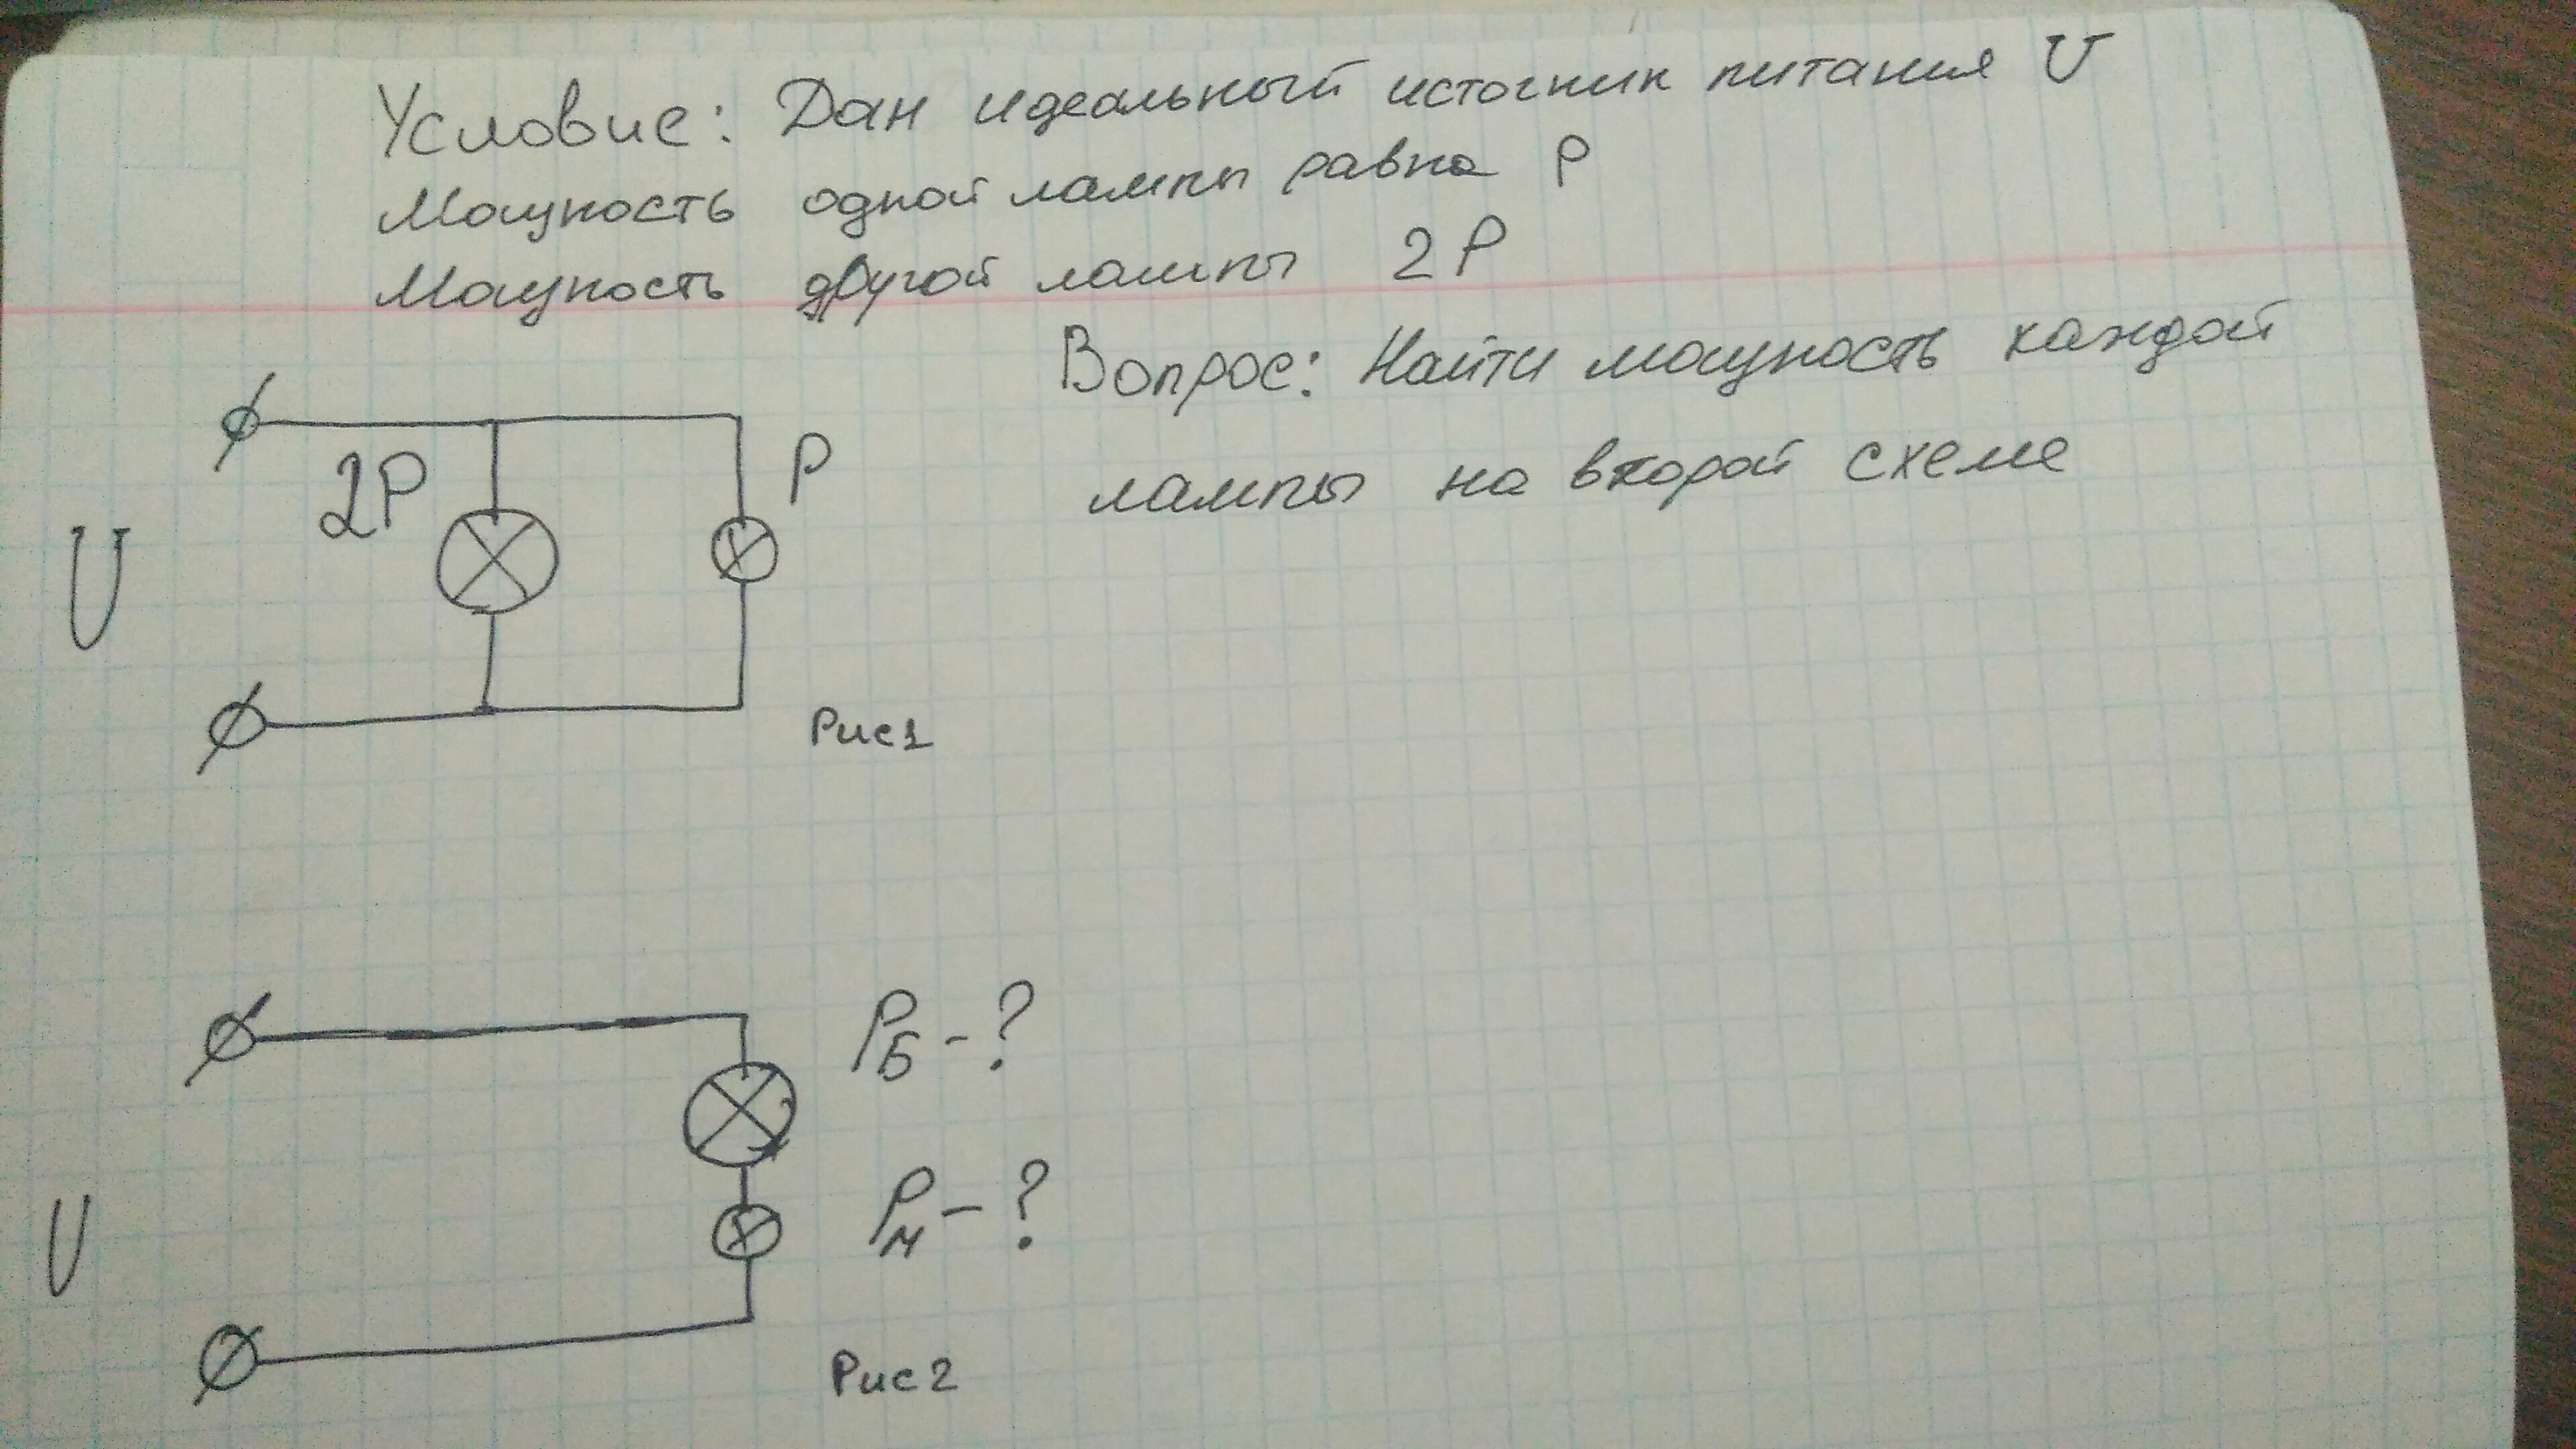 Условие: Дан идеальный источник питания U
Мощность одной лампы равна P
Мощность другой лампы 2P
Вопрос: Найти мощность каждой
лампы на второй схеме
2P
P
U
Рис1
PБ - ?
PМ - ?
U
Рис2